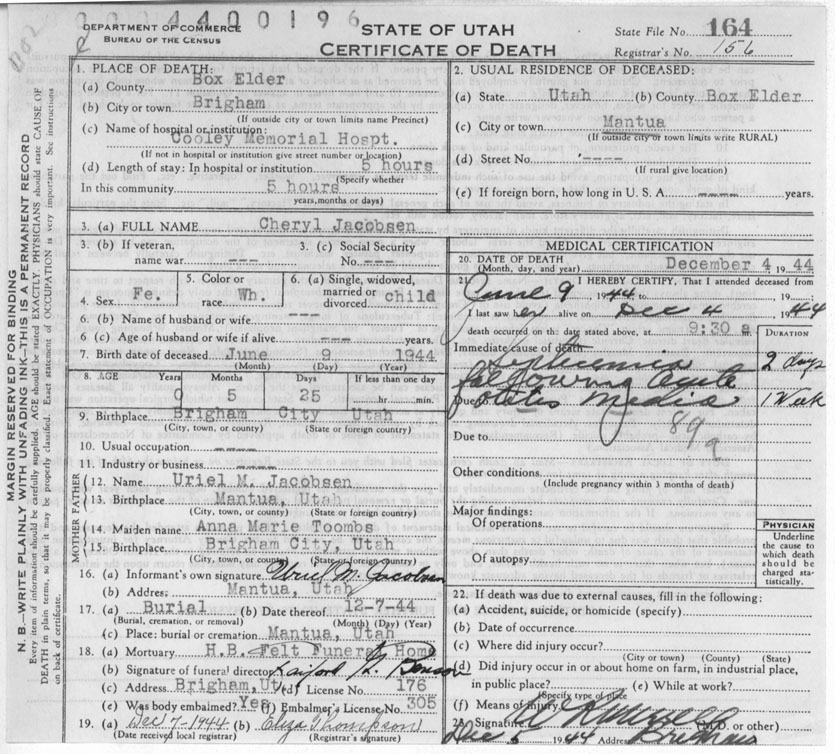 004400196
DEPARTMENT OF COMMERCE
BUREAU OF THE CENSUS
STATE OF UTAH
CERTIFICATE OF DEATH
State File No. 164
Registrar's No. 156
MARGIN RESERVED FOR BINDING
N. B.—WRITE PLAINLY WITH UNFADING INK—THIS IS A PERMANENT RECORD
Every item of information should be carefully supplied. AGE should be stated EXACTLY. PHYSICIANS should state CAUSE OF
DEATH in plain terms, so that it may be properly classified. Exact statement of OCCUPATION is very important. See instructions
on back of certificate.
1. PLACE OF DEATH:
(a) County Box Elder
(b) City or town Brigham
(If outside city or town limits name Precinct)
(c) Name of hospital or institution:
Cooley Memorial Hospt.
(If not in hospital or institution give street number or location)
(d) Length of stay: In hospital or institution 5 hours
(Specify whether
In this community 5 hours
years, months or days)
2. USUAL RESIDENCE OF DECEASED:
(a) State Utah (b) County Box Elder
(c) City or town Mantua
(If outside city or town limits write RURAL)
(d) Street No. '----
(If rural give location)
(e) If foreign born, how long in U. S. A. ---- years.
3. (a) FULL NAME Cheryl Jacobsen
3. (b) If veteran,
name war ---
3. (c) Social Security
No. ---
4. Sex Fe.
5. Color or
race Wh.
6. (a) Single, widowed,
married or
divorced child
6. (b) Name of husband or wife ---
6 (c) Age of husband or wife if alive --- years.
7. Birth date of deceased June 9 1944
(Month) (Day) (Year)
8. AGE Years Months Days If less than one day
0 5 25 hr. min.
9. Birthplace Brigham City Utah
(City, town, or county) (State or foreign country)
10. Usual occupation ----
11. Industry or business ----
FATHER
12. Name Uriel M. Jacobsen
13. Birthplace Mantua, Utah
(City, town, or county) (State or foreign country)
MOTHER
14. Maiden name Anna Marie Toombs
15. Birthplace Brigham City, Utah
(City, town, or county) (State or foreign country)
16. (a) Informant's own signature Uriel M. Jacobsen
(b) Address Mantua, Utah
17. (a) Burial (b) Date thereof 12-7-44
(Burial, cremation, or removal) (Month) (Day) (Year)
(c) Place: burial or cremation Mantua, Utah
18. (a) Mortuary H.B. Felt Funeral Home
(b) Signature of funeral director
(c) Address Brigham, Ut (d) License No. 176
(e) Was body embalmed? Yes (f) Embalmer's License No. 305
19. (a) Dec 7-1944 (b) Eliza Thompson
(Date received local registrar) (Registrar's signature)
MEDICAL CERTIFICATION
20. DATE OF DEATH
(Month, day, and year) December 4 1944
21. I HEREBY CERTIFY, That I attended deceased from
June 9 1944 to 19
I last saw her alive on Dec 4 1944
death occurred on the date stated above, at 9:30 a
DURATION
Immediate cause of death
Septicemia 2 days
following acute
Due to otitis media 1 week
Due to 89a
Other conditions
(Include pregnancy within 3 months of death)
Major findings:
Of operations
Of autopsy
PHYSICIAN
Underline
the cause to
which death
should be
charged sta-
tistically.
22. If death was due to external causes, fill in the following:
(a) Accident, suicide, or homicide (specify)
(b) Date of occurrence
(c) Where did injury occur?
(City or town) (County) (State)
(d) Did injury occur in or about home on farm, in industrial place,
in public place? (e) While at work?
(Specify type of place
(f) Means of injury
23. Signature (M.D. or other)
Dec 5 1944 Address Brigham